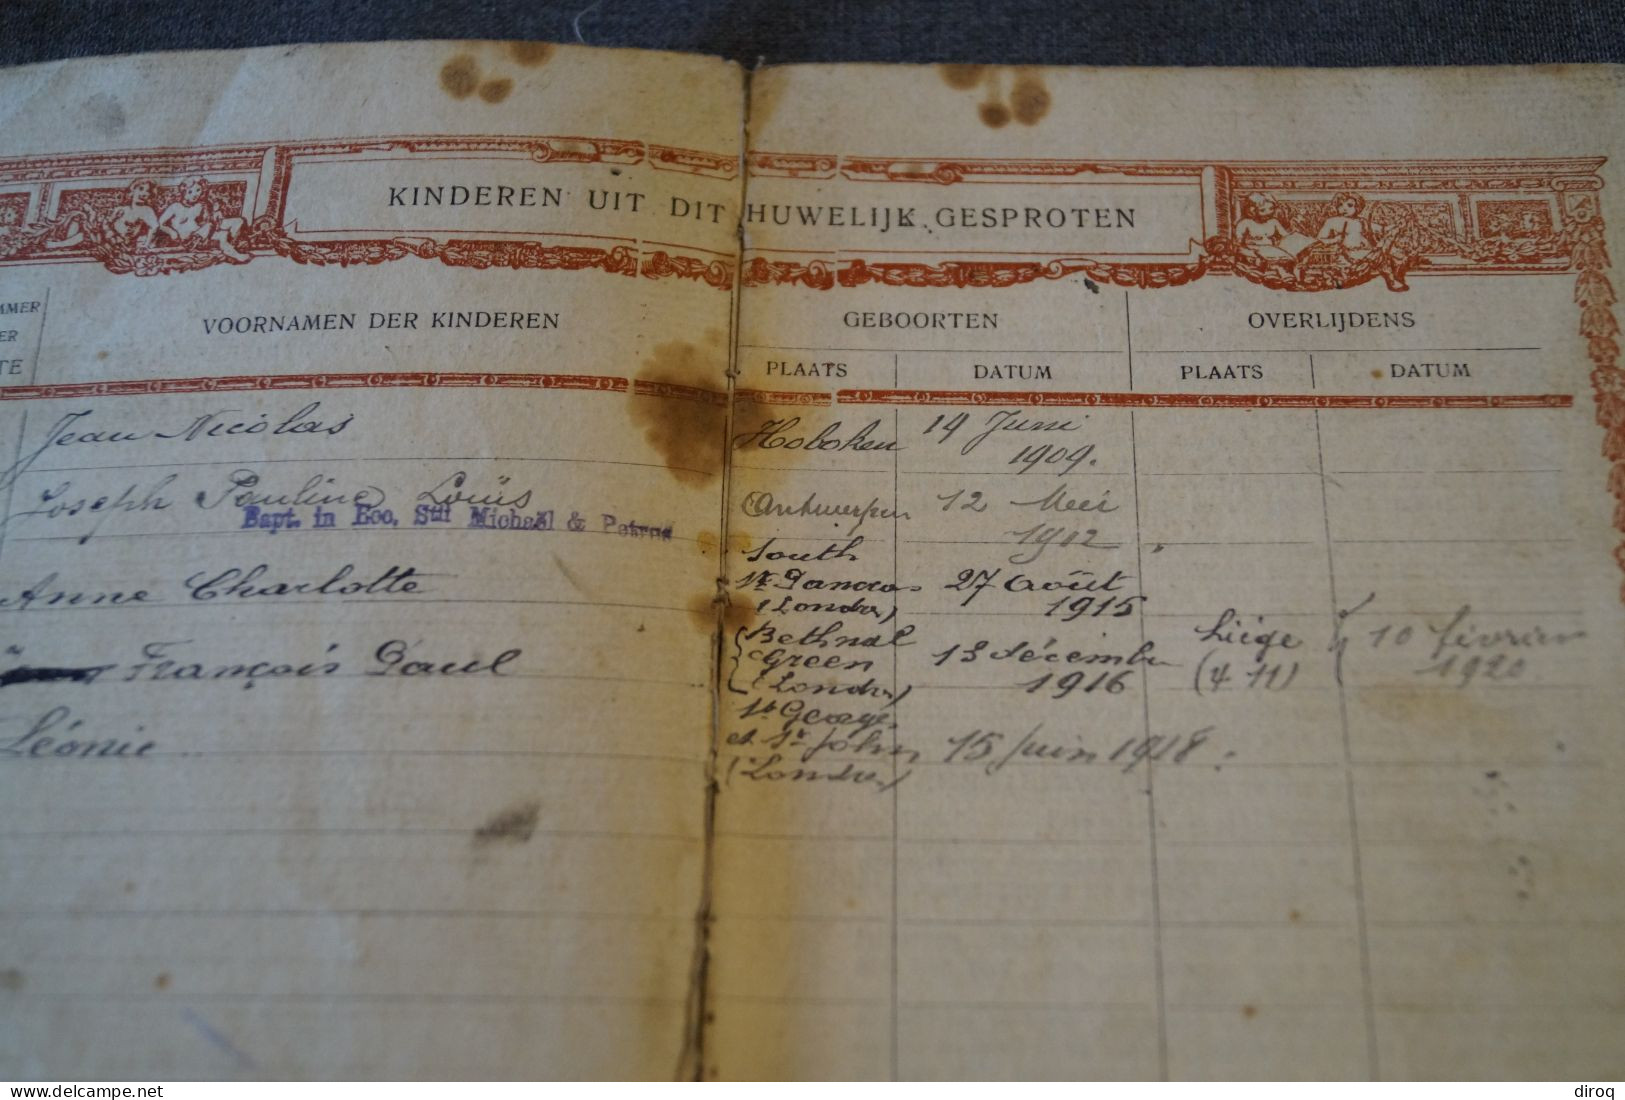 KINDEREN UIT DIT HUWELIJK GESPROTEN
MMER
ER
TE
VOORNAMEN DER KINDEREN
GEBOORTEN
OVERLIJDENS
PLAATS
DATUM
PLAATS
DATUM
Jean Nicolas
Hoboken
19 Juni
1909.
Joseph Pauline Louis
Bapt. in Ecc. Sti Michaël & Petrus
Antwerpen
12 Mei
1912
Anne Charlotte
South
St Pancras
(Londres)
27 Août
1915
François Paul
Bethnal
Green
(Londres)
13 décembre
1916
Liége
(4 11)
10 février
1920
Léonie
St George
et St John
(Londres)
15 juin 1918
diroq